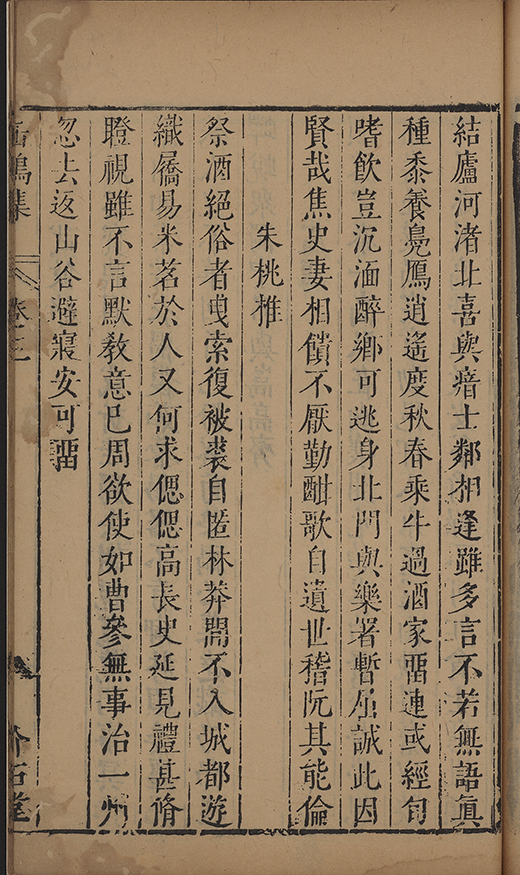 結廬河渚北喜與瘖士鄰相逢雖多言不若無語眞
種黍養鳧鴈逍遙度秋春乘牛過酒家畱連或經旬
嗜飲豈沉湎醉鄉可逃身北門與樂署暫屈誠此因
賢哉焦史妻相饋不厭勤酣歌自遺世稽阮其能倫
朱桃椎
祭酒絕俗者曳索復被裘自匿林莽閒不入城都遊
織屩易米茗於人又何求偲偲高長史延見禮甚脩
瞪視雖不言默敎意已周欲使如曹參無事治一州
忽去返山谷避寢安可畱
集 卷三
介石堂